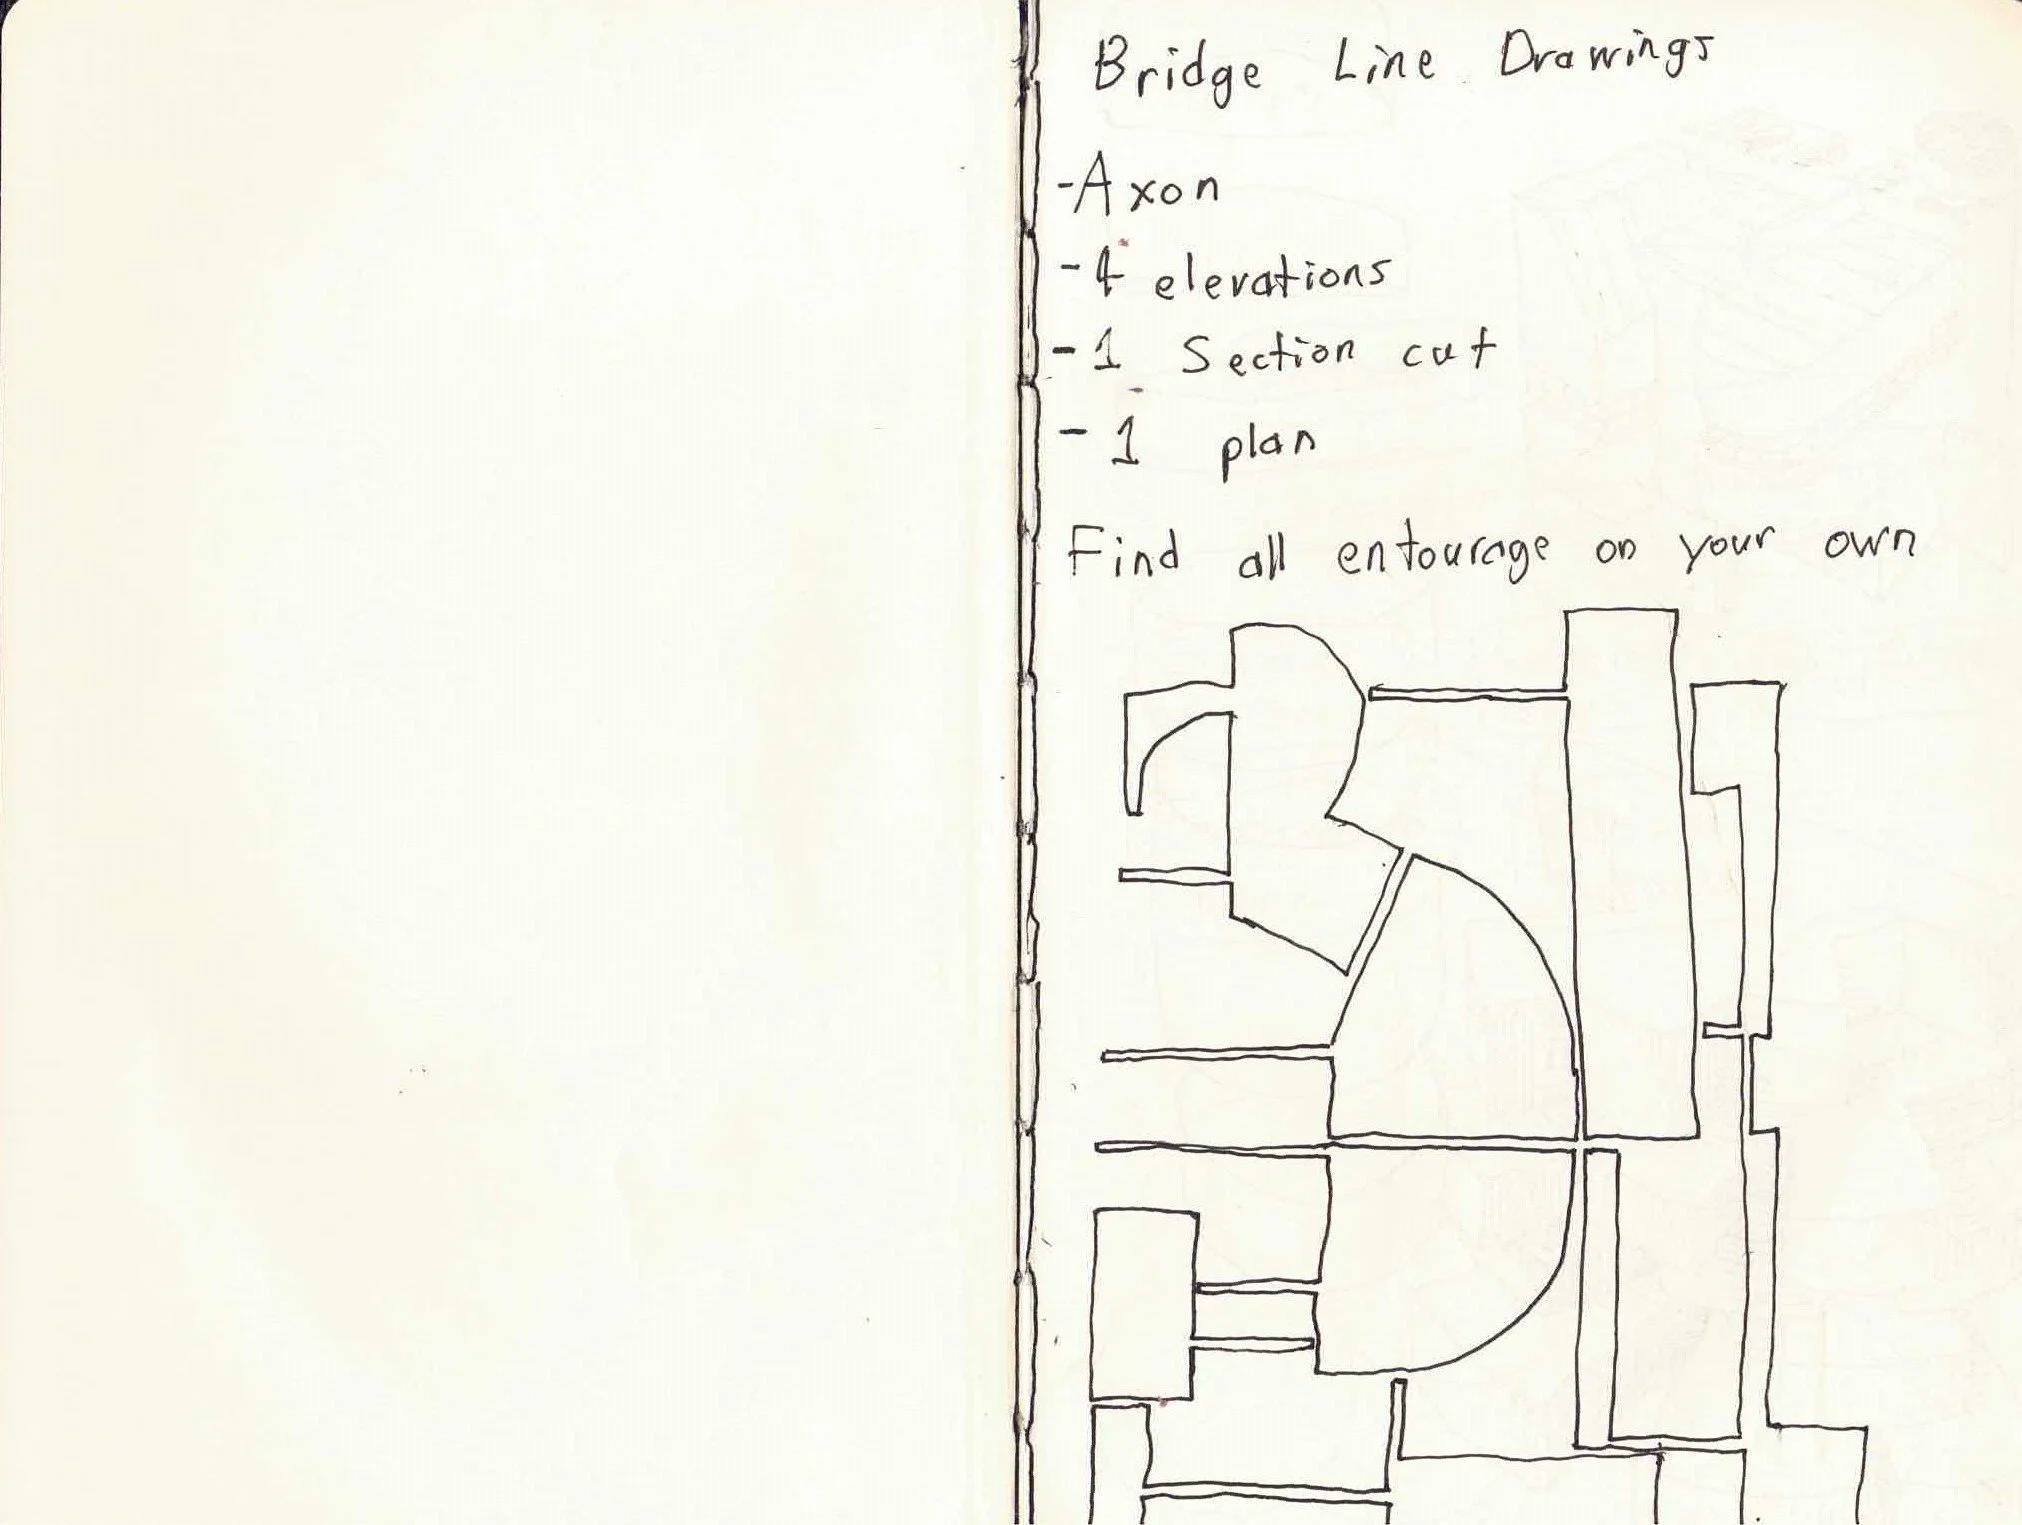 Bridge Line Drawings
-Axon
-4 elevations
-1 Section cut
-1 plan
Find all entourage on your own